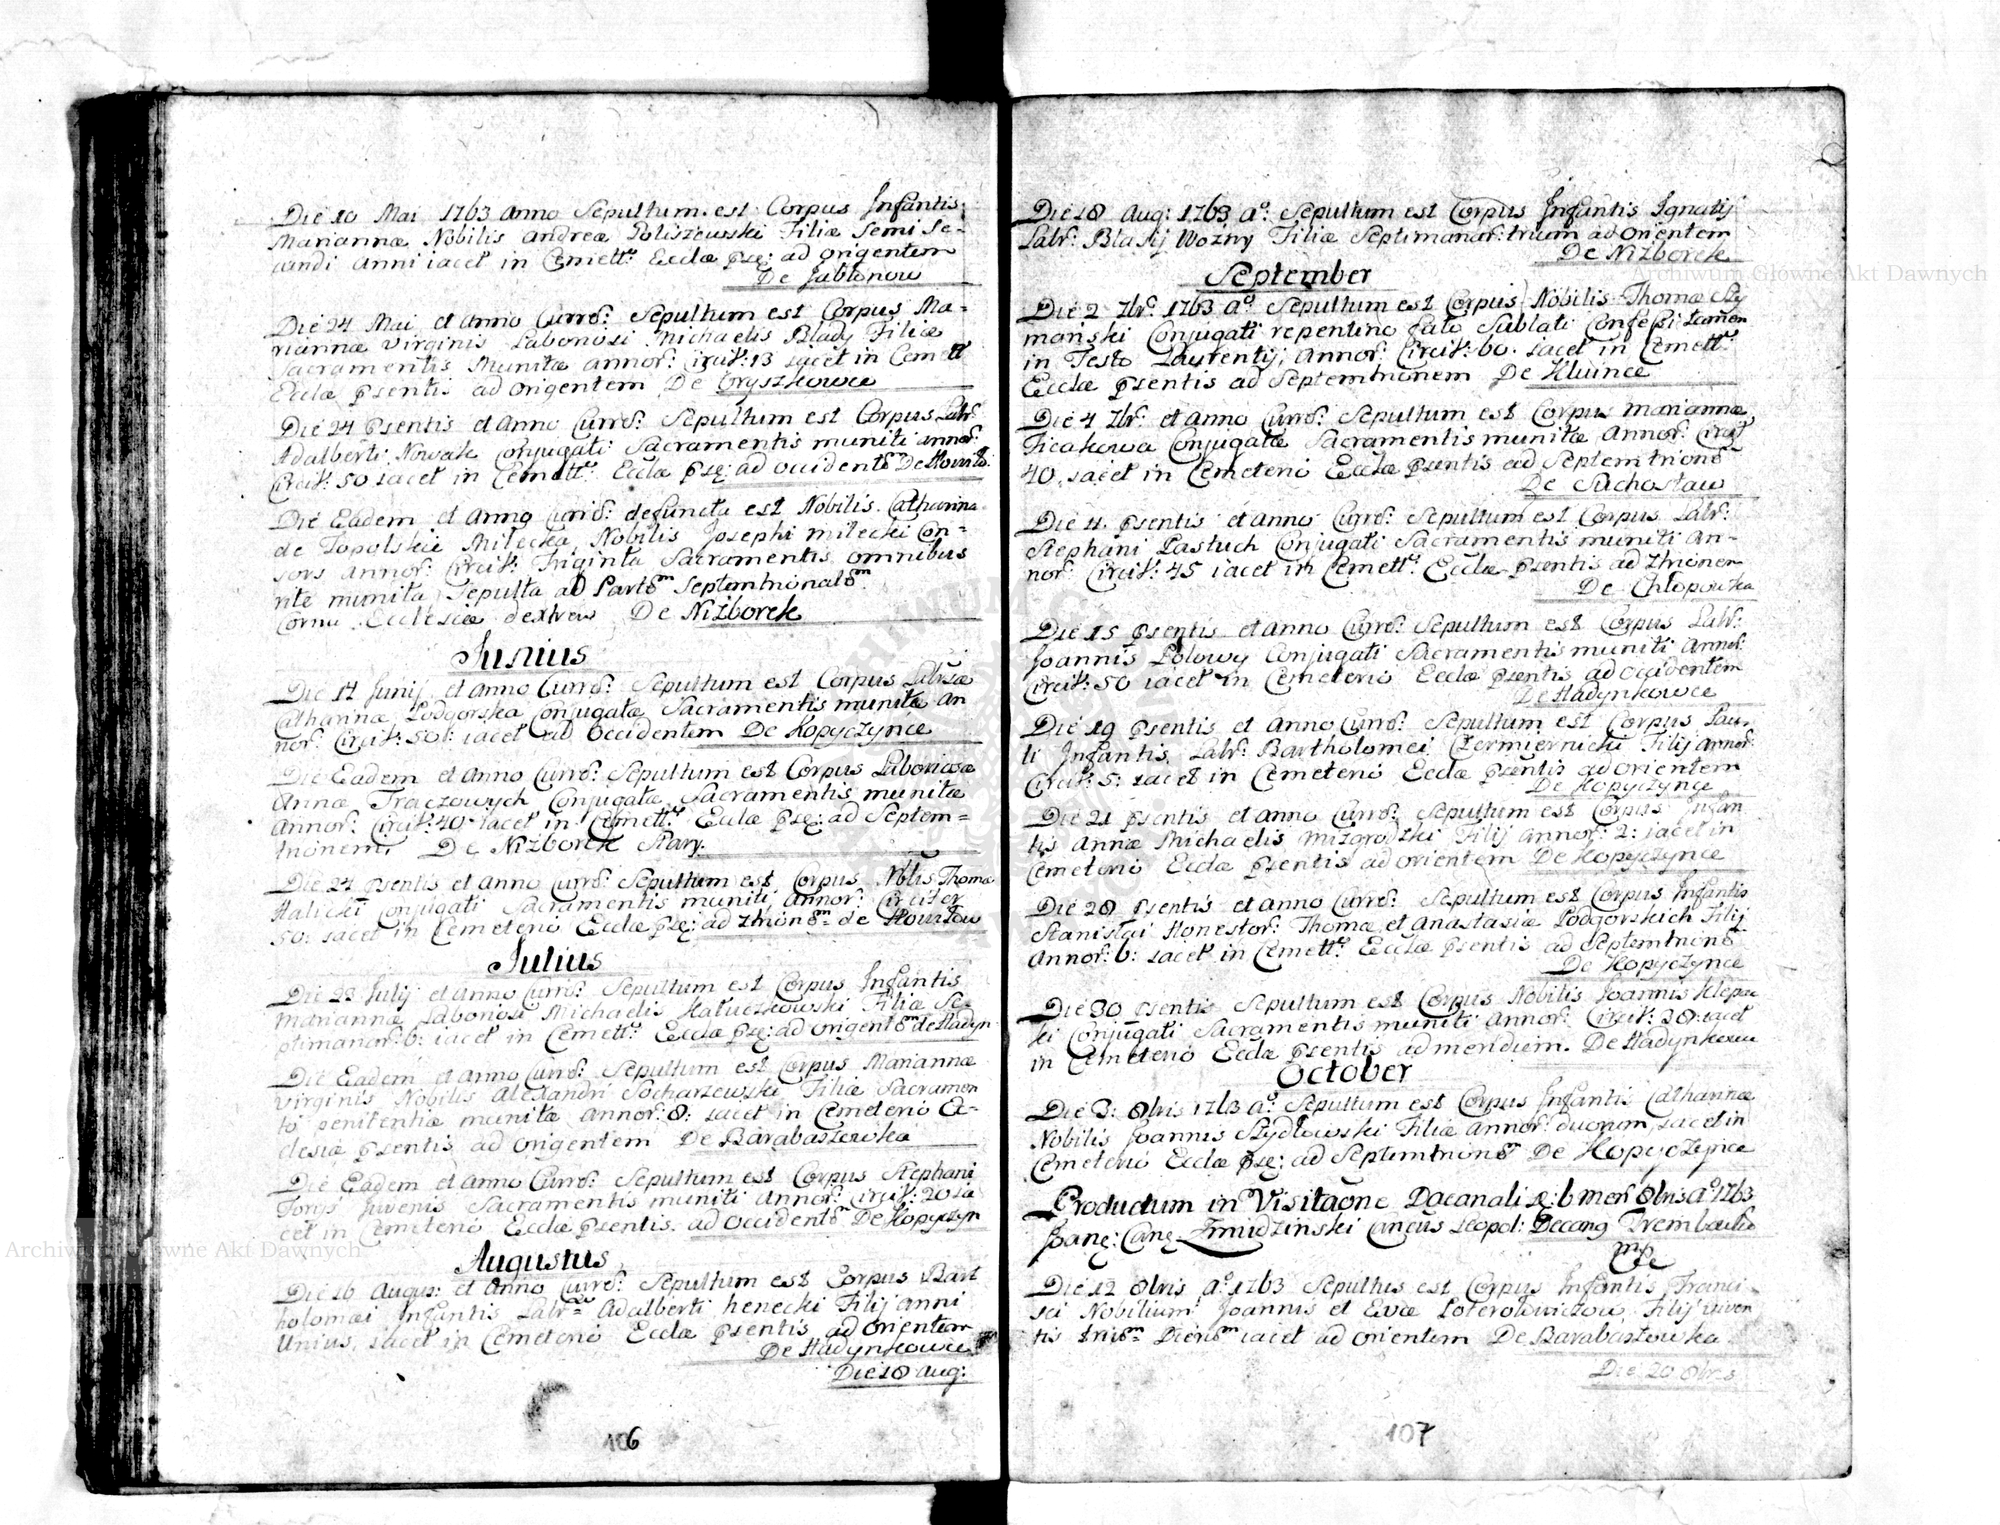 Die 10 Mai 1763 Anno Sepultum est Corpus Infantis
Mariannæ Nobilis Andreæ Poliszewski Filiæ Semi Se-
cundi Anni iacet in Cemett: Ecclæ psę: ad origentem
De Jabłonow
Die 24 Mai et Anno Curro: Sepultum est Corpus Ma-
riannæ Virginis Labonosi Michaelis Blady Filiæ
Sacramentis Munitæ annor: Circit: 13 iacet in Cemett
Ecclæ psentis ad origentem De Oryszkowce
Die 24 psentis et Anno Curro: Sepultum est Corpus Labr:
Adalberti Nowak Conjugati Sacramentis muniti annor:
Circit: 50 iacet in Cemett: Ecclæ psę: ad occidentem De
Die Eadem et Anno Curro: defuncta est Nobilis Catharina
de Topolskie Milecka, Nobilis Josephi Milecki Con-
sors Annor: Circit: Triginta Sacramentis omnibus
rite munita Sepulta ad Partem Septemtrionalem
Cornu Ecclesiæ dextrew De Niżborek
Junius
Die 17 Junij et Anno Curro: Sepultum est Corpus Labrsæ
Catharinæ Podgorska Conjugatæ Sacramentis munitæ An
nor: Circit: 50: iacet ad Occidentem De Kopyczynce
Die Eadem et Anno Curro: Sepultum est Corpus Laboriosæ
Annæ Traczowych Conjugatæ Sacramentis munitæ
Annor: Circit: 40 iacet in Cemett: Ecclæ psę: ad Septem-
trionem. De Niżborek Stary.
Die 24 psentis et Anno Curro: Sepultum est Corpus Nblis Thomæ
Halicki Conjugati Sacramentis muniti Annor: Circiter
50: iacet in Cemeterio Ecclæ psę: ad de
Julius
Die 23 Julij et Anno Curro: Sepultum est Corpus Infantis
Mariannæ Labonosi Michaelis Hałuczkowski Filiæ Se-
ptimanor: 6: iacet in Cemett: Ecclæ psę: ad origentem de Hadyn
Die Eadem et Anno Curro: Sepultum est Corpus Mariannæ
Virginis Nobilis Alexandri Socharzewski Filiæ Sacramen
to penitentiæ munitæ Annor: 8: iacet in Cemeterio Ec-
clesiæ psentis ad origentem De Barabaszowka
Die Eadem et Anno Curro: Sepultum est Corpus Stephani
Forys Juvenis Sacramentis muniti Annor: Circit: 20 ia
cet in Cemeterio Ecclæ psentis. ad Occidentem De Kopyczyn
Augustus
Die 16 Augus: et Anno Curro: Sepultum est Corpus Bart
holomæi Infantis Labr: Adalberti henecki Filij anni
Unius, iacet in Cemeterio Ecclæ psentis ad Orientem
De Hadynkowce
Die 18 Aug:
106
Die 18 Aug: 1763 Ao: Sepultum est Corpus Infantis Ignatij
Labr: Blasij Wozny Filiæ Septimanar: trium ad Orientem
De Niżborek
September
Die 2 7br: 1763 Ao Sepultum est Corpus Nobilis Thomæ Szy
mański Conjugati repentino fato Sublati Confessi tamen
in Festo Laurentij, Annor: Circit: 60. iacet in Cemett:
Ecclæ psentis ad Septemtrionem De Kluince
Die 4 7br: et anno Curro: Sepultum est Corpus Mariannæ
Conjugatæ Sacramentis munitæ Annor: Circit
40, iacet in Cemeterio Ecclæ psentis ad Septemtrione
De Suchostaw
Die 4 psentis et Anno Curro: Sepultum est Corpus Labr:
Stephani Pastuch Conjugati Sacramentis muniti An-
nor: Circit: 45 iacet in Cemett: Ecclæ psentis ad
De Chłopowka
Die 15 psentis et anno Curro: Sepultum est Corpus Labr:
Joannis Polowy Conjugati Sacramentis muniti Annor:
Circit: 50 iacet in Cemeterio Ecclæ psentis ad Occidentem
De Hadynkowce
Die 19 psentis et Anno Curro: Sepultum est Corpus Pau-
li Infantis, Labr: Bartholomei Czermiernicki Filij Annor:
Circit: 5: iacet in Cemeterio Ecclæ psentis ad orientem
De Kopyczynce
Die 21 psentis et anno Curro: Sepultum est Corpus Infan
tis Annæ Michaelis Mizgrodzki Filij Annor: 2: iacet in
Cemeterio Ecclæ psentis ad orientem De Kopyczynce
Die 28 psentis et anno Curro: Sepultum est Corpus Infantis
Stanisłai Honestor: Thomæ et Anastasiæ Podgorskich Filij
Annor: 6: iacet in Cemett: Ecclæ psentis ad Septemtrione
De Kopyczynce
Die 30 psentis Sepultum est Corpus Nobilis Joannis
ki Conjugati Sacramentis muniti Annor: Circit: 28: iacet
in Cemeterio Ecclæ psentis ad meridiem. De Hadynkowce
October
Die 3: 8bris 1763 Ao: Sepultum est Corpus Infantis Catharinæ
Nobilis Joannis Szydłowski Filiæ Annor: duorum, iacet in
Cemeterio Ecclæ psę: ad Septemtrionem De Kopyczynce
Productum in Visitaone Dacanali 6 8bris Ao 1763
Joanę: Canę Zmudzinski Leopol: Decang Trembowl
mp
Die 12 8bris Ao: 1763 Sepultus est Corpus Infantis Franci-
sci Nobilium Joannis et Evæ Filij viven
tis iacet ad Orientem De Barabaszowka
Die 20 8bris
107
Archiwum Główne Akt Dawnych
Archiwum Główne Akt Dawnych